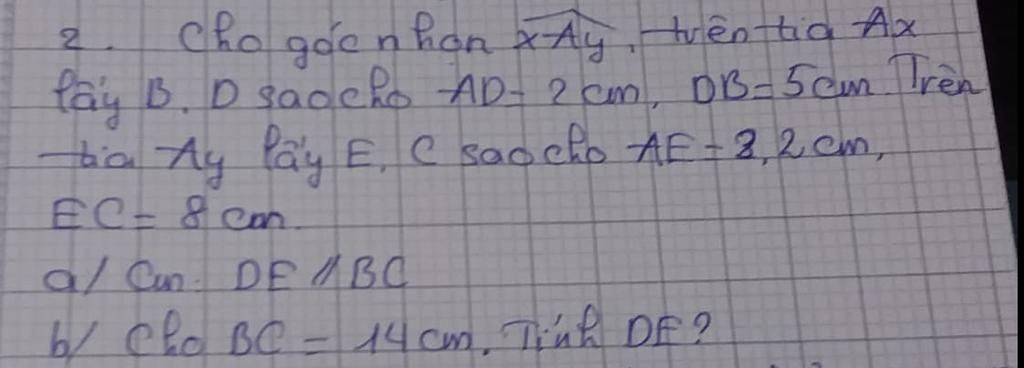 2. Cho góc nhọn xAy, trên tia Ax
lấy B, D sao cho AD = 2 cm, DB = 5 cm Trên
tia Ay lấy E, C sao cho AE = 3,2 cm,
EC = 8 cm.
a/ Cm: DE // BC
b/ Cho BC = 14 cm. Tính DE?